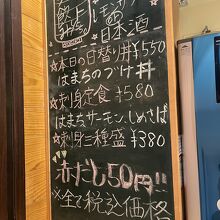 日本酒
☆本日の日替り丼¥550
はまちのづけ丼
☆刺身定食¥580
はまちサーモン、しめさば
☆刺身三種盛¥380
赤だし50円!!
※全て税込価格